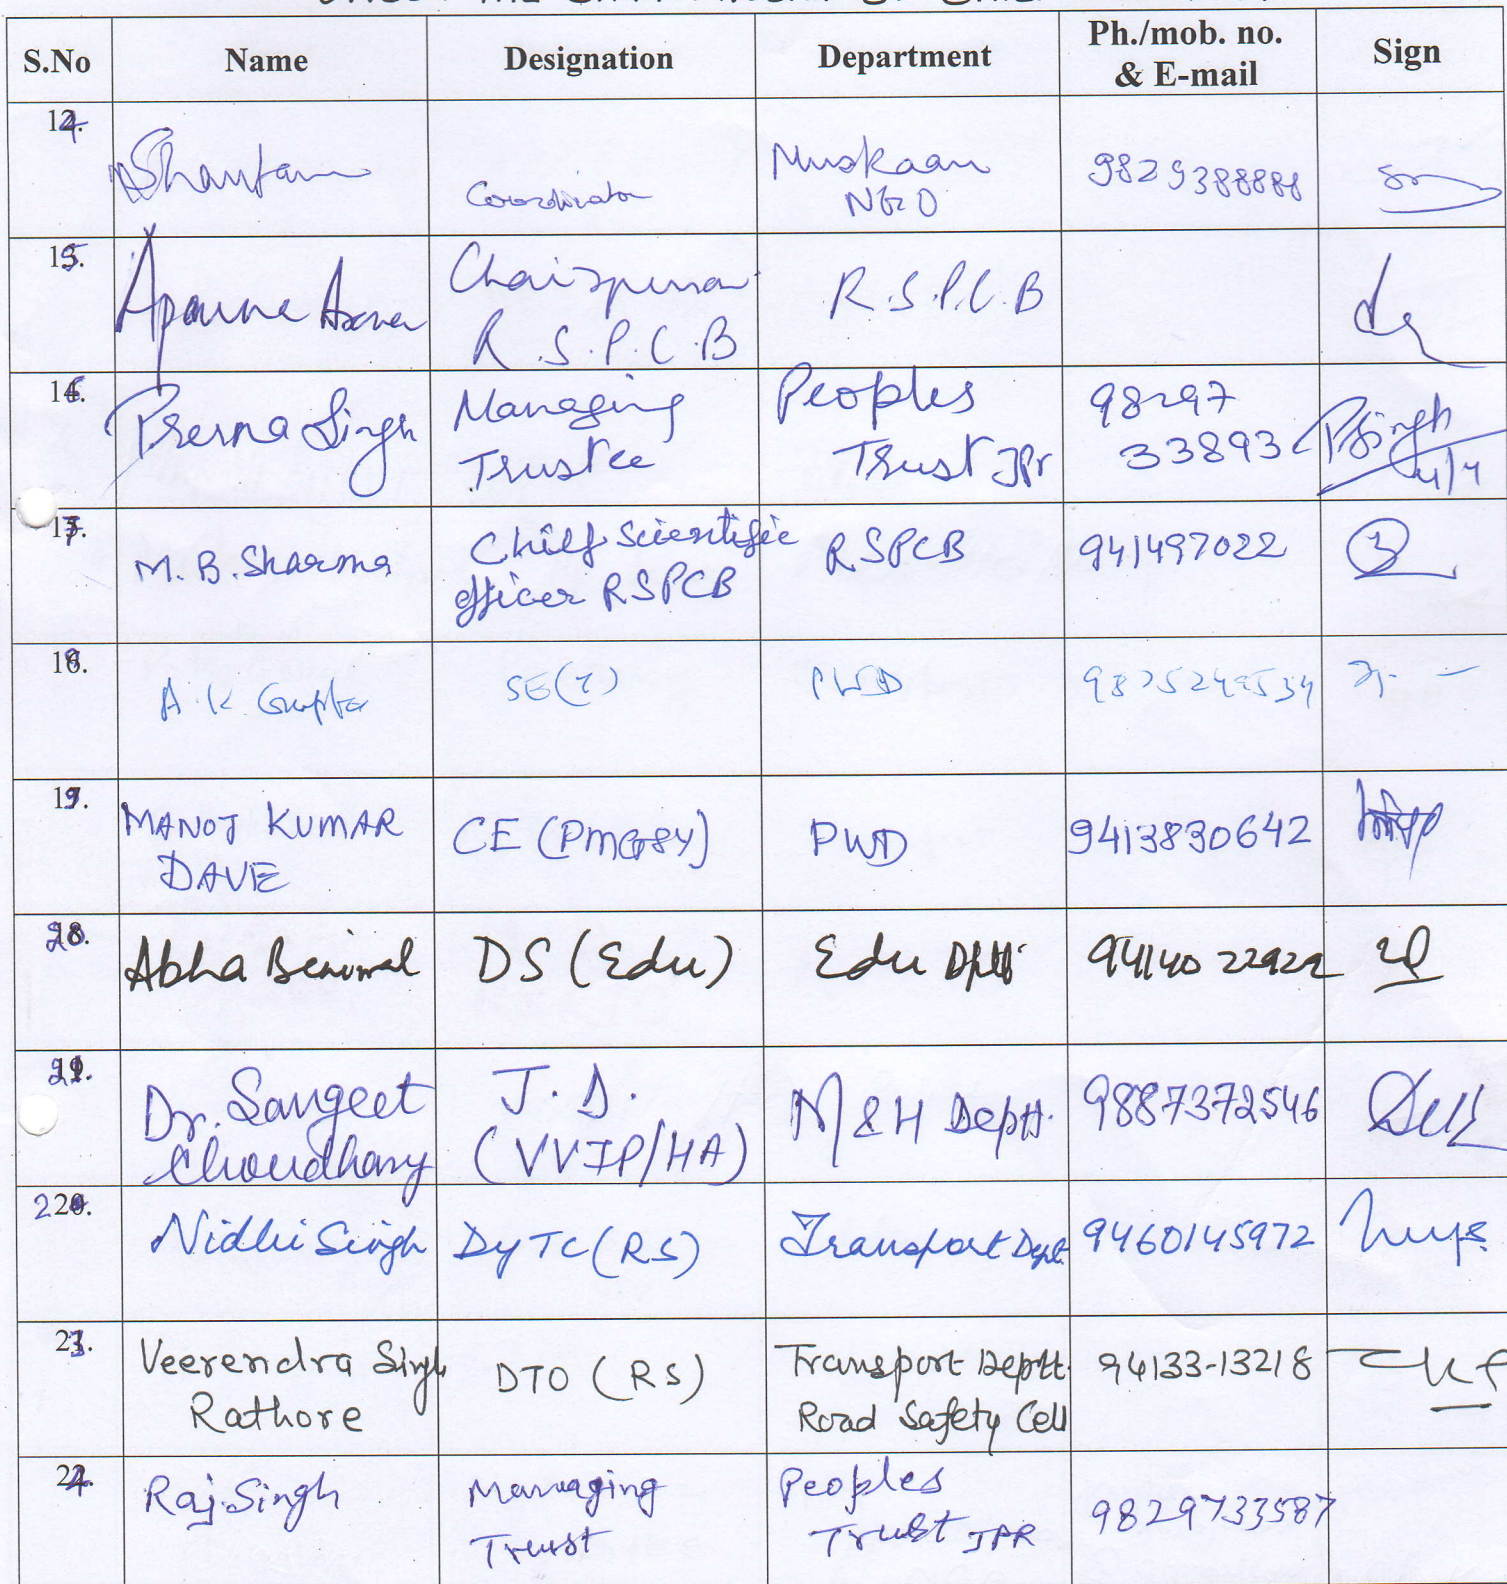 S.No Name Designation Department Ph./mob. no. & E-mail Sign
14. Shantanu Coordinator Muskaan NGO
15. Chairperson R.S.P.C.B R.S.P.C.B
16. Prerna Singh Managing Trustee Peoples Trust JPr 98297 33893 PSingh
17. M.B. Sharma Chief Scientific officer RSPCB RSPCB 941497022
18. A.K. Gupta PWD
19. MANOJ KUMAR DAVE CE (PMGSY) PWD 9413830642
20. Abha Beniwal DS (Edu) Edu Deptt. 94140 22922
21. Dr. Sangeet Choudhary J.D. (VVIP/HA) M&H Deptt. 9887372546
22. Nidhi Singh DyTC (RS) Transport Dept. 9460145972
23. Veerendra Singh Rathore DTO (RS) Transport Deptt. Road Safety Cell 94133-13218
24. Raj Singh Managing Trust Peoples Trust JPR 9829733587